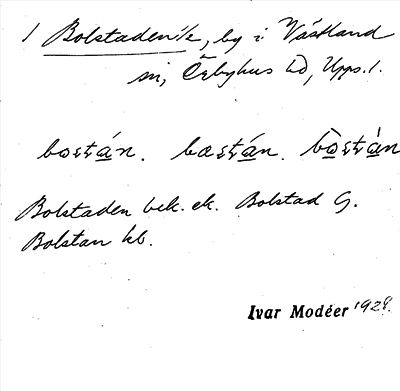 1 Bolstaden, by i Västland
sn, Örbyhus hd, Upps. l.
bostán. bastán. bòstán
Bolstaden bek. ek. Bolstad G.
Bolstan kb.
Ivar Modéer 1928.